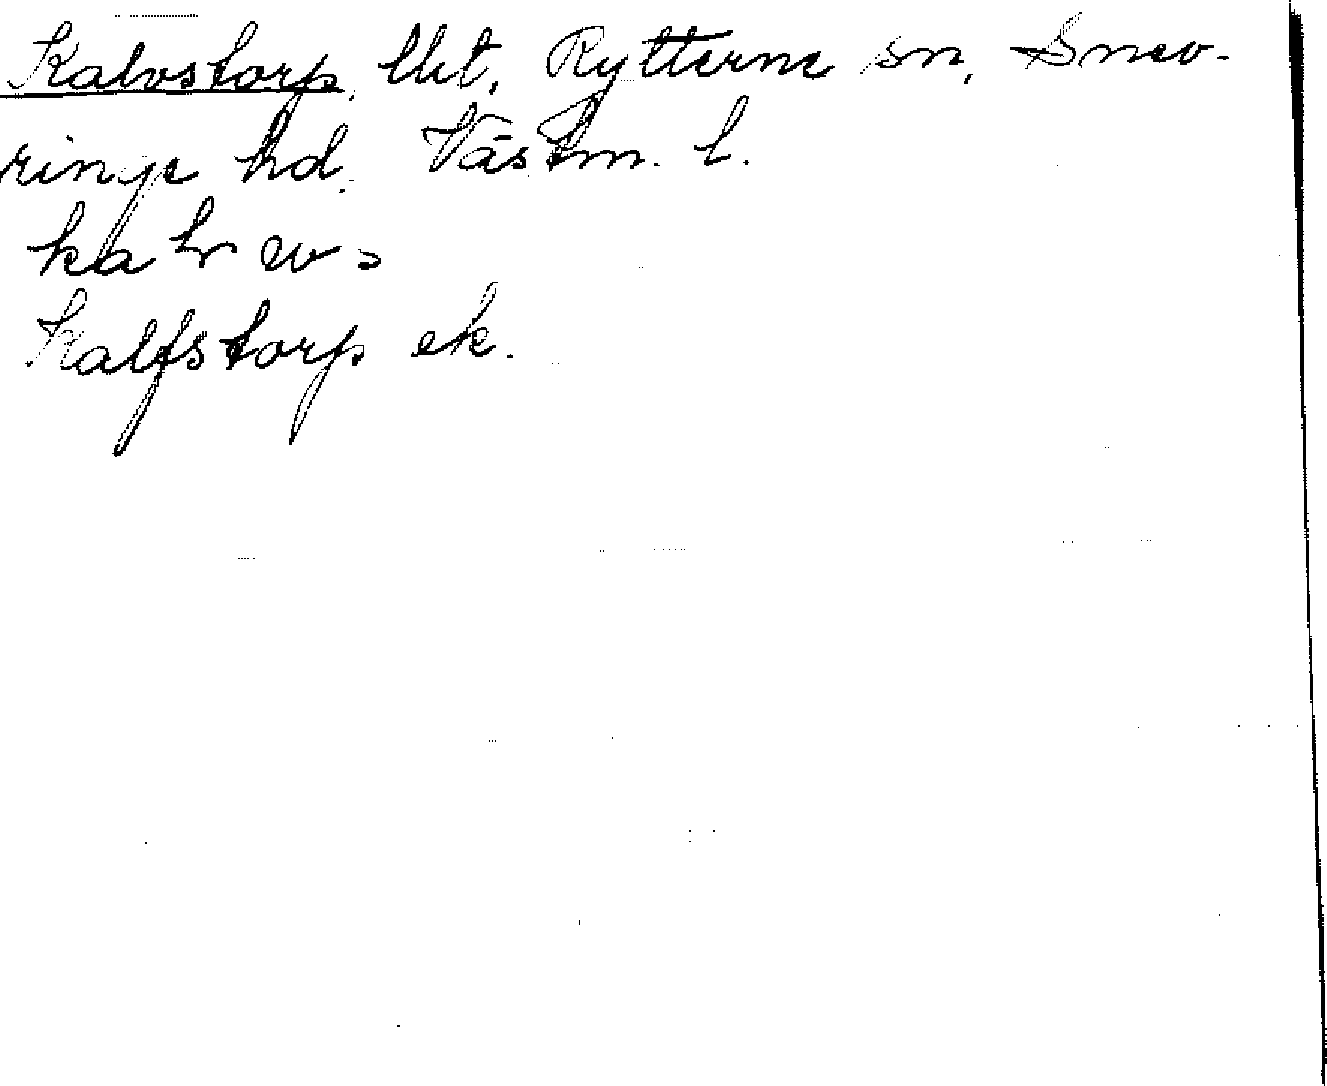 Kalvstorp, lht, Rytterne sn, Snev-
ringe hd. Västm. l.
Kalfstorp ek.